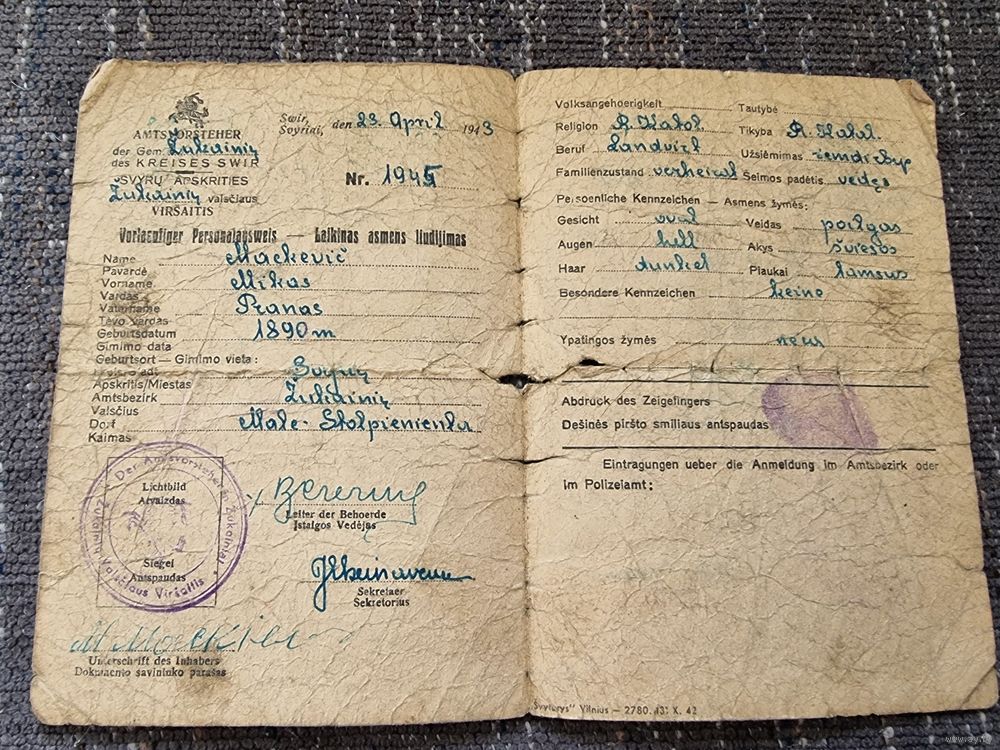 AMTSVORSTEHER
der Gem. Žukainių
des KREISES SWIR
SVYRŲ APSKRITIES
Žukainių valsčiaus
VIRŠAITIS
Swir,
Svyriai, den 23. April 1943
Nr. 1945
Vorlaeufiger Personalausweis — Laikinas asmens liudijimas
Name Mackevič
Pavardė
Vorname Mikas
Vardas
Vatername Pranas
Tėvo vardas
Geburtsdatum 1890 m
Gimimo data
Geburtsort — Gimimo vieta:
Svyrių
Apskritis/Miestas
Amtsbezirk Žukainių
Valsčius
Dorf Male-Stolpienienka
Kaimas
Der Amtsvorsteher in Žukainiai
Žukainių Valsčiaus Viršaitis
Lichtbild
Atvaizdas
Siegel
Antspaudas
Leiter der Behoerde
Įstaigos Vedėjas
Sekretaer
Sekretorius
Unterschrift des Inhabers
Dokumento savininko parašas
Volksangehoerigkeit Tautybė
Religion R. Katol. Tikyba R. Katal.
Beruf Landvirt Užsiėmimas žemdirbys
Familienzustand verheirat Šeimos padėtis vedęs
Persoenliche Kennzeichen — Asmens žymės:
Gesicht oval Veidas pailgas
Augen hell Akys šviesos
Haar dunkel Plaukai tamsus
Besondere Kennzeichen keine
Ypatingos žymės nėra
Abdruck des Zeigefingers
Dešinės piršto smiliaus antspaudas
Eintragungen ueber die Anmeldung im Amtsbezirk oder
im Polizeiamt:
"Švyturys" Vilnius — 2780. 131 X. 42